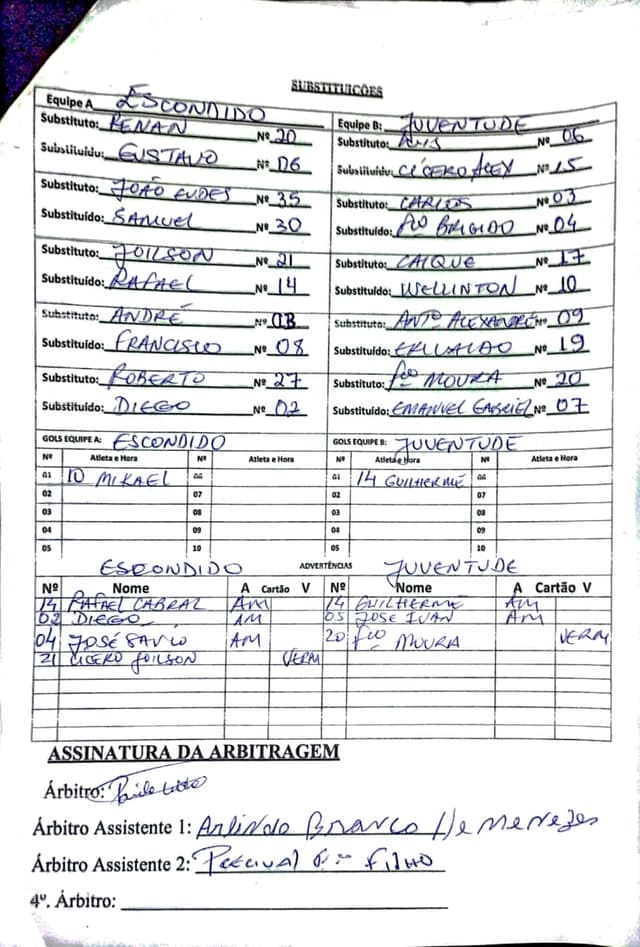 SUBSTITUICÕES
Equipe A ESCONDIDO
Equipe B: JUVENTUDE
Substituto: RENAN Nº 20
Substituto: Nº 06
Substituído: GUSTAVO Nº 06
Substituído: CÍCERO ALEX Nº 15
Substituto: JOÃO EUDES Nº 35
Substituto: CARLOS Nº 03
Substituído: SAMUEL Nº 30
Substituído: Fco BRIGIDO Nº 04
Substituto: JOILSON Nº 21
Substituto: CAIQUE Nº 17
Substituído: RAFAEL Nº 14
Substituído: WELLINTON Nº 10
Substituto: ANDRÉ Nº
Substituto: ANTº ALEXANDRE Nº 09
Substituído: FRANCISCO Nº 08
Substituído: Nº 19
Substituto: ROBERTO Nº 27
Substituto: Fco MOURA Nº 20
Substituído: DIEGO Nº 02
Substituído: EMANUEL GABRIEL Nº 07
GOLS EQUIPE A: ESCONDIDO
GOLS EQUIPE B: JUVENTUDE
Nº Atleta e Hora Nº Atleta e Hora Nº Atleta e Hora Nº Atleta e Hora
01 10 MIKAEL 06 01 14 GUILHERME 06
02 07 02 07
03 08 03 08
04 09 04 09
05 10 05 10
ESCONDIDO ADVERTÊNCIAS JUVENTUDE
Nº Nome A Cartão V Nº Nome A Cartão V
14 RAFAEL CABRAL AM 14 GUILHERME AM
02 DIEGO AM 05 JOSE IVAN AM
04 JOSÉ SAVIO AM 20 Fco MOURA VERM
21 CICERO JOILSON VERM
ASSINATURA DA ARBITRAGEM
Árbitro:
Árbitro Assistente 1: Arlindo Branco de Menezes
Árbitro Assistente 2: Percival Filho
4º. Árbitro: